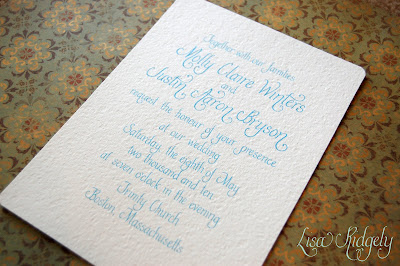 Together with our families
Molly Claire Winters
and
Justin Aaron Bryson
request the honour of your presence
at our wedding
Saturday, the eighth of May
two thousand and ten
at seven o'clock in the evening
Trinity Church
Boston, Massachusetts
Lisa Ridgely